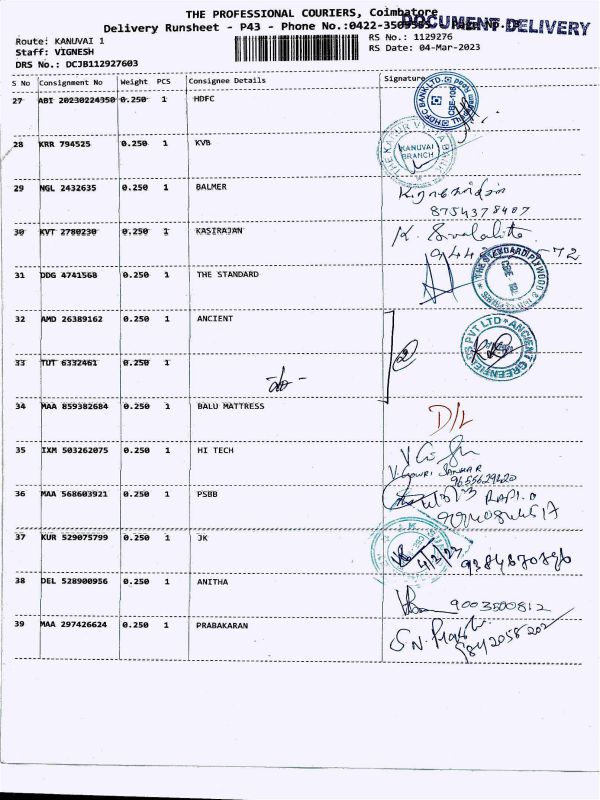 THE PROFESSIONAL COURIERS, Coimbatore
Delivery Runsheet - P43 - Phone No.:0422-
DOCUMENT DELIVERY
Route: KANUVAI 1
RS No.: 1129276
Staff: VIGNESH
RS Date: 04-Mar-2023
DRS No.: DCJB112927603
S No Consignment No Weight PCS Consignee Details Signature
27 ABI 20230224350 0.250 1 HDFC
HDFC BANK LTD.
28 KRR 794525 0.250 1 KVB
KANUVAI
BRANCH
29 NGL 2432635 0.250 1 BALMER
8754378407
30 KVT 2780230 0.250 1 KASIRAJAN
K.
31 DDG 4741568 0.250 1 THE STANDARD
THE STANDARD PLYWOOD &
32 AMD 26389162 0.250 1 ANCIENT
ANCIENT GREENFIELDS PVT LTD
2
33 TUT 6332461 0.250 1
-do-
34 MAA 859382684 0.250 1 BALU MATTRESS
D/L
35 IXM 503262075 0.250 1 HI TECH
V. GOWRI SANKAR
9655629220
36 MAA 568603921 0.250 1 PSBB
37 KUR 529075799 0.250 1 JK
4/3/23
38 DEL 528900956 0.250 1 ANITHA
9003500812
39 MAA 297426624 0.250 1 PRABAKARAN
9842058202